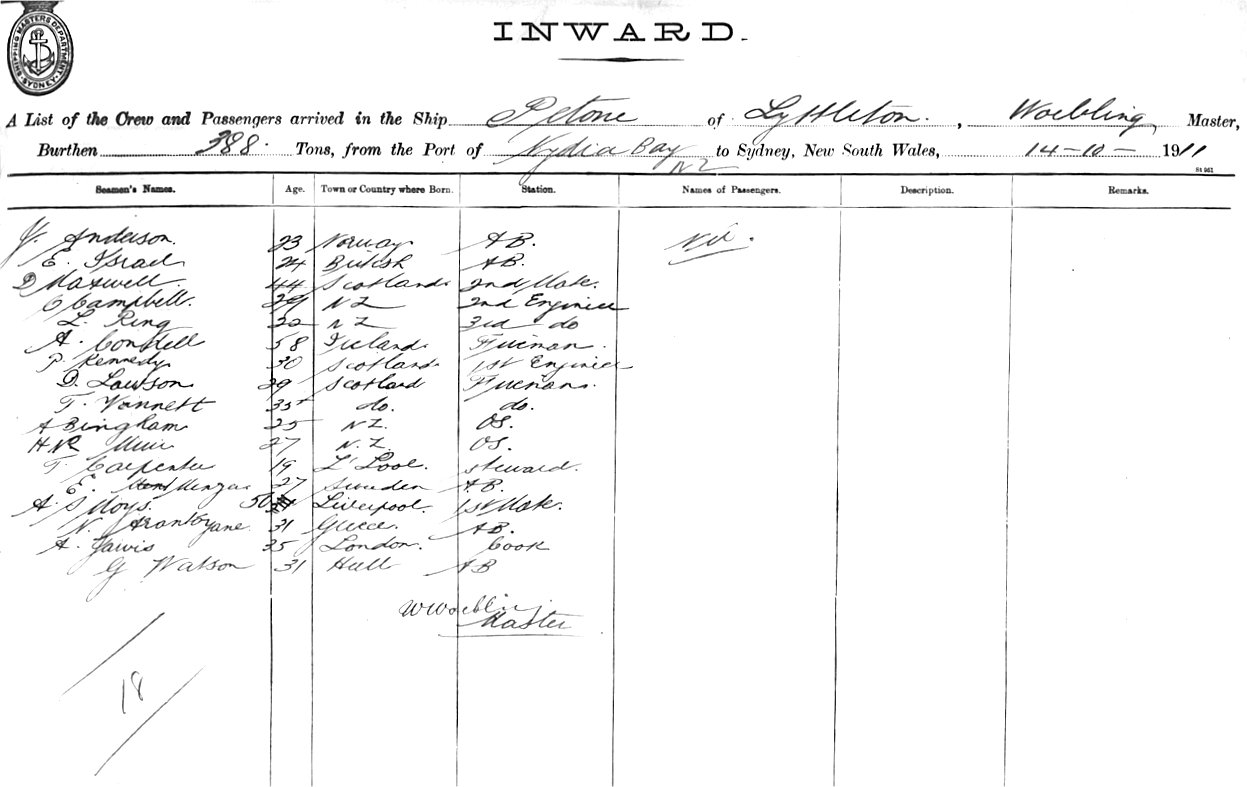 SHIPPING MASTERS DEPARTMENT. SYDNEY.
INWARD.
A List of the Crew and Passengers arrived in the Ship Petone of Lyttleton, Woebling Master,
Burthen 388. Tons, from the Port of Nydia Bay NZ to Sydney, New South Wales, 14-10- 1911
St 951
Seamen's Names. Age. Town or Country where Born. Station. Names of Passengers. Description. Remarks.
J. Anderson. 23 Norway AB. Nil.
E. Israel 24 British AB.
D Maxwell. 44 Scotland. 2nd Mate.
C Campbell. 29 NZ 2nd Engineer
L. Ring 22 NZ 3rd do
A. Condell 58 Ireland. Fireman.
P. Kennedy 30 Scotland. 1st Engineer
D. Lawson 29 Scotland Firemans.
T. Vannett 35 do. do.
A Bingham 25 NZ. OS.
HNR Muir 27 N.Z. OS.
T. Carpenter 19 L'Pool. Steward.
E. 27 Sweden A.B.
A. S Moys. 50 Liverpool. 1st Mate.
N. 31 Greece. AB.
A. Jarvis 35 London. Cook
G Watson 31 Hull AB
W Woeblin.
Master
18